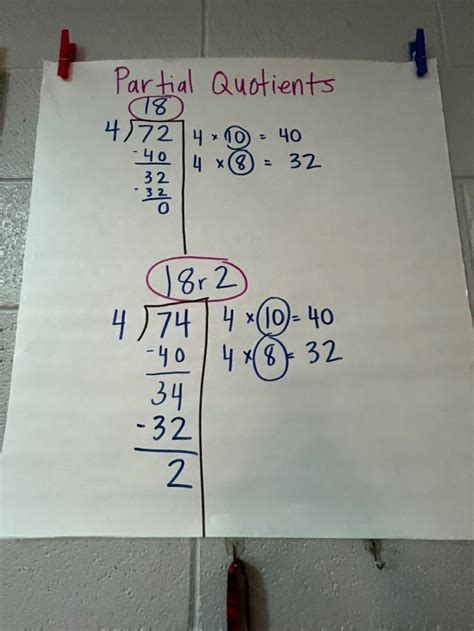 Partial Quotients
18
4)72 4 × 10 = 40
-40 4 × 8 = 32
32
-32
0
18r2
4)74 4 × 10 = 40
-40 4 × 8 = 32
34
-32
2